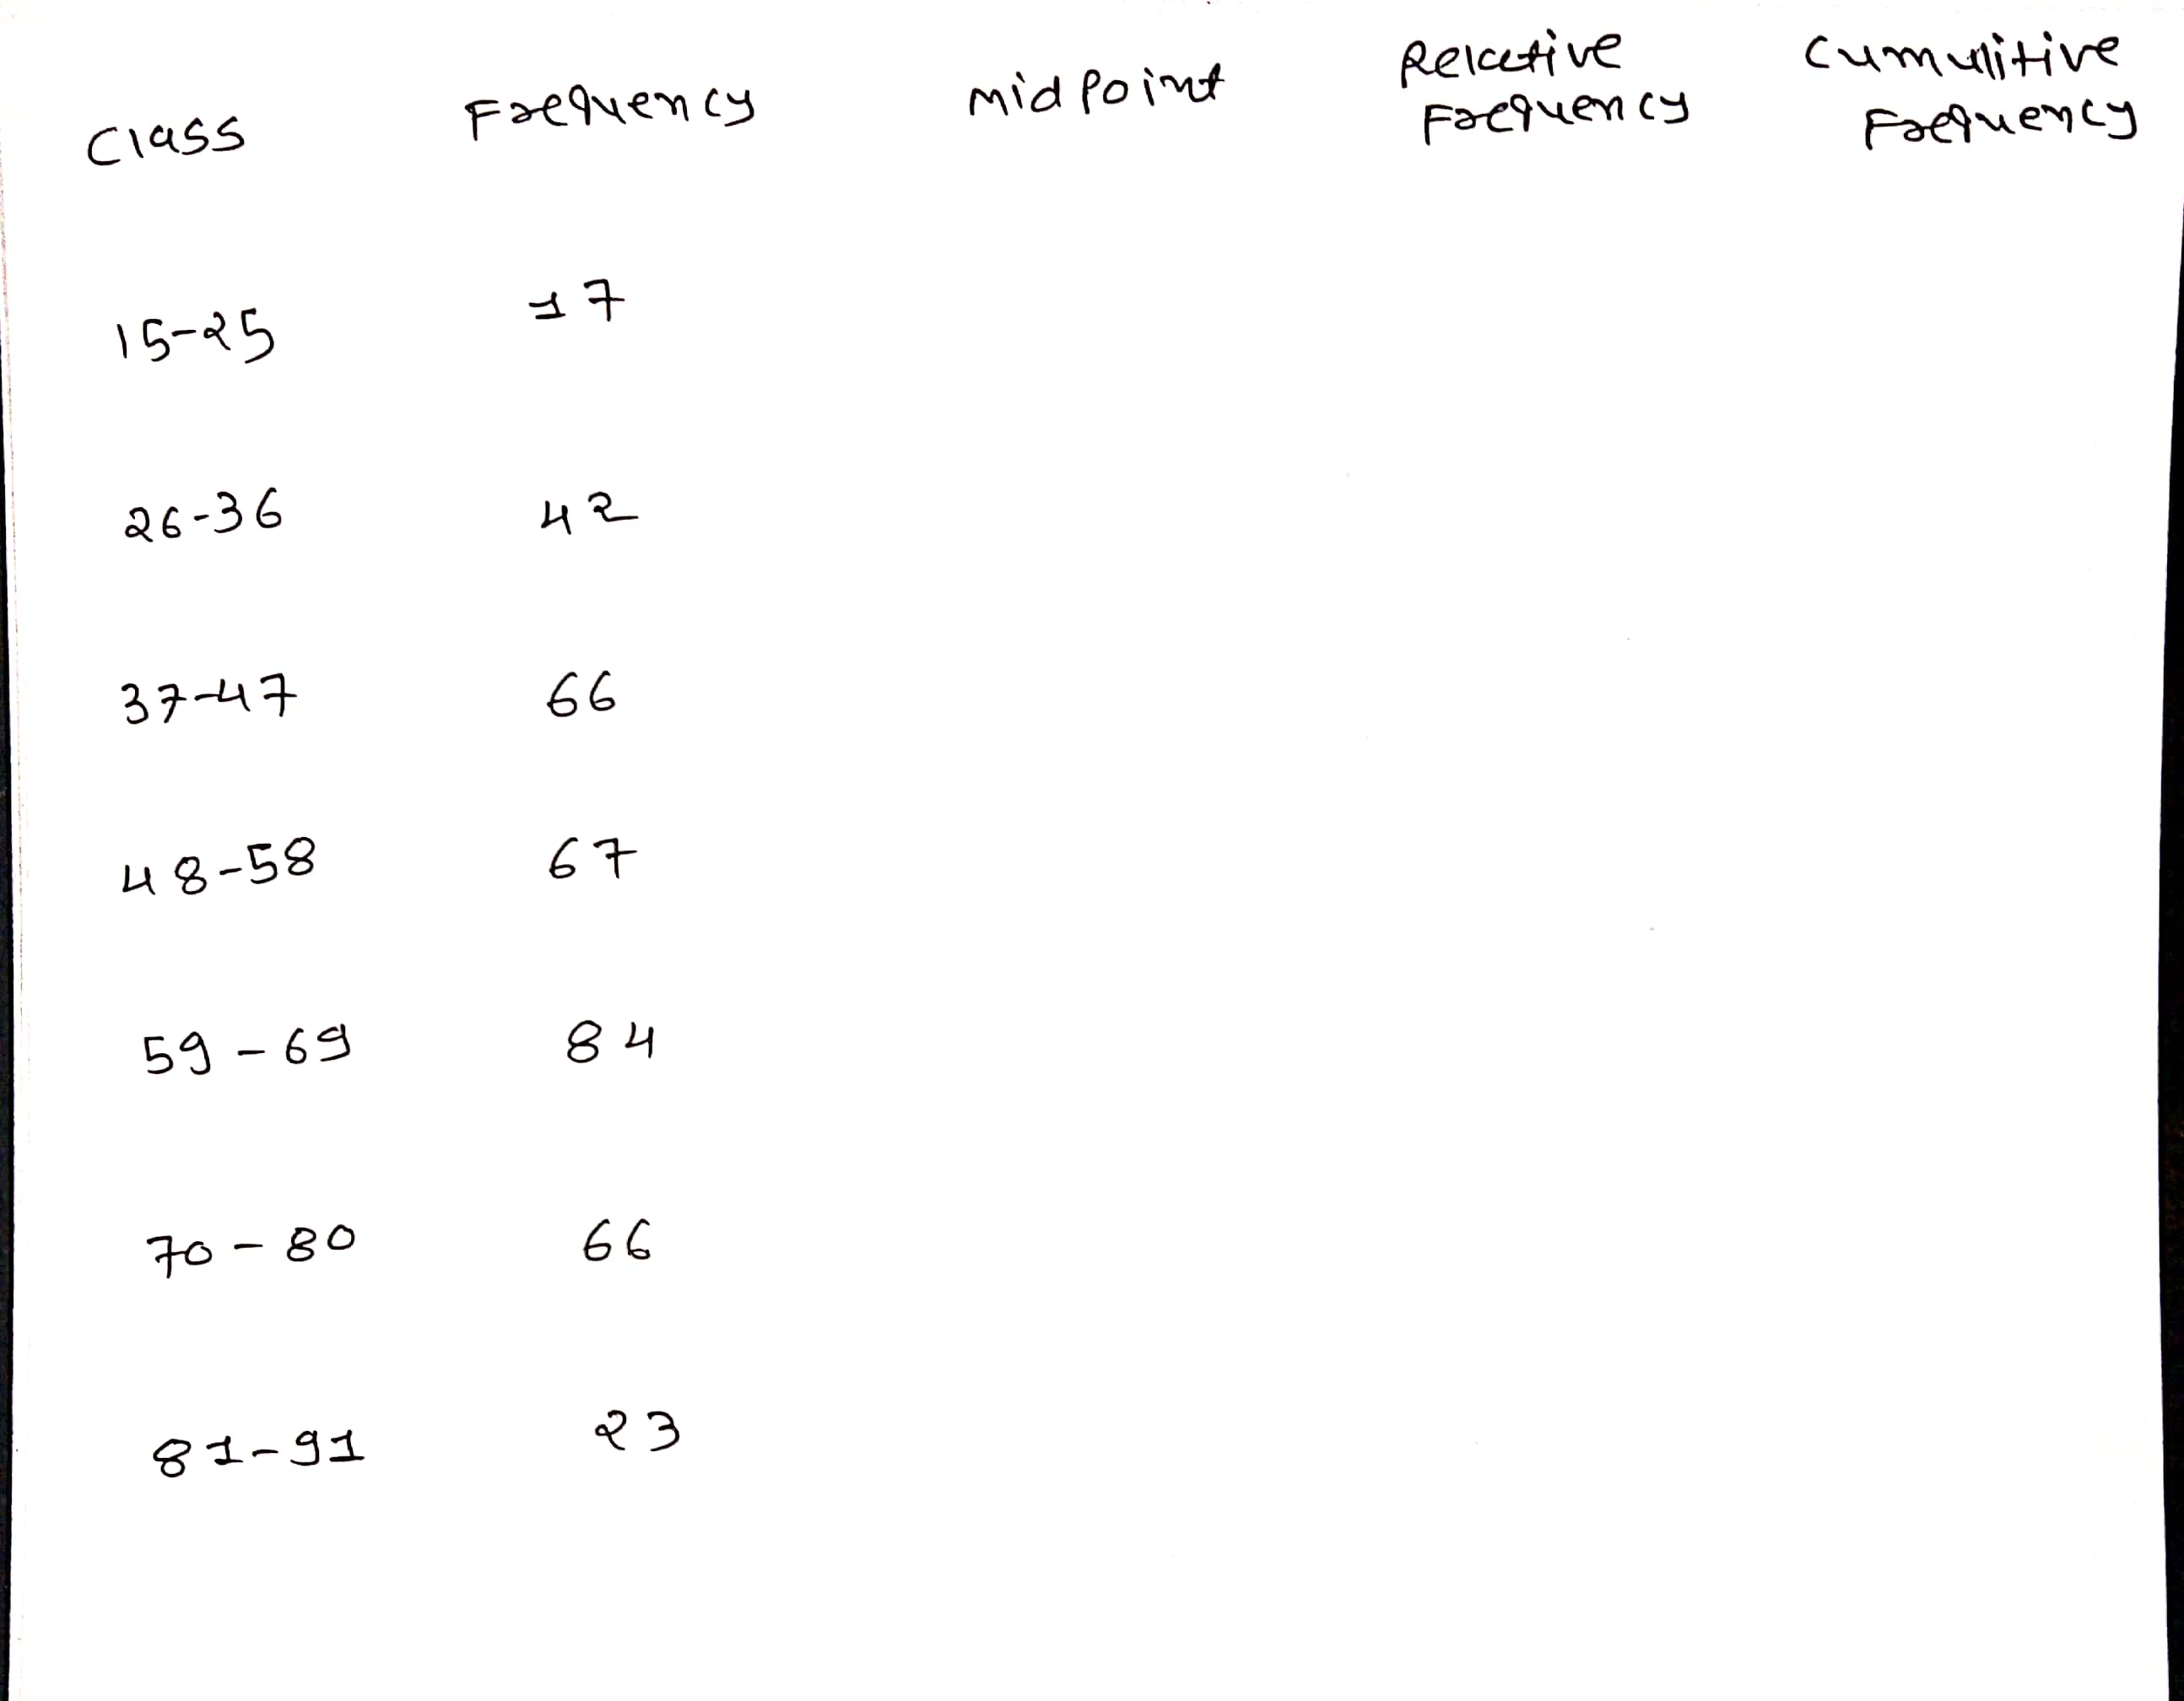 Class Frequency midpoint Relative Frequency Cumulitive Frequency
15-25 17
26-36 42
37-47 66
48-58 67
59-69 84
70-80 66
81-91 23